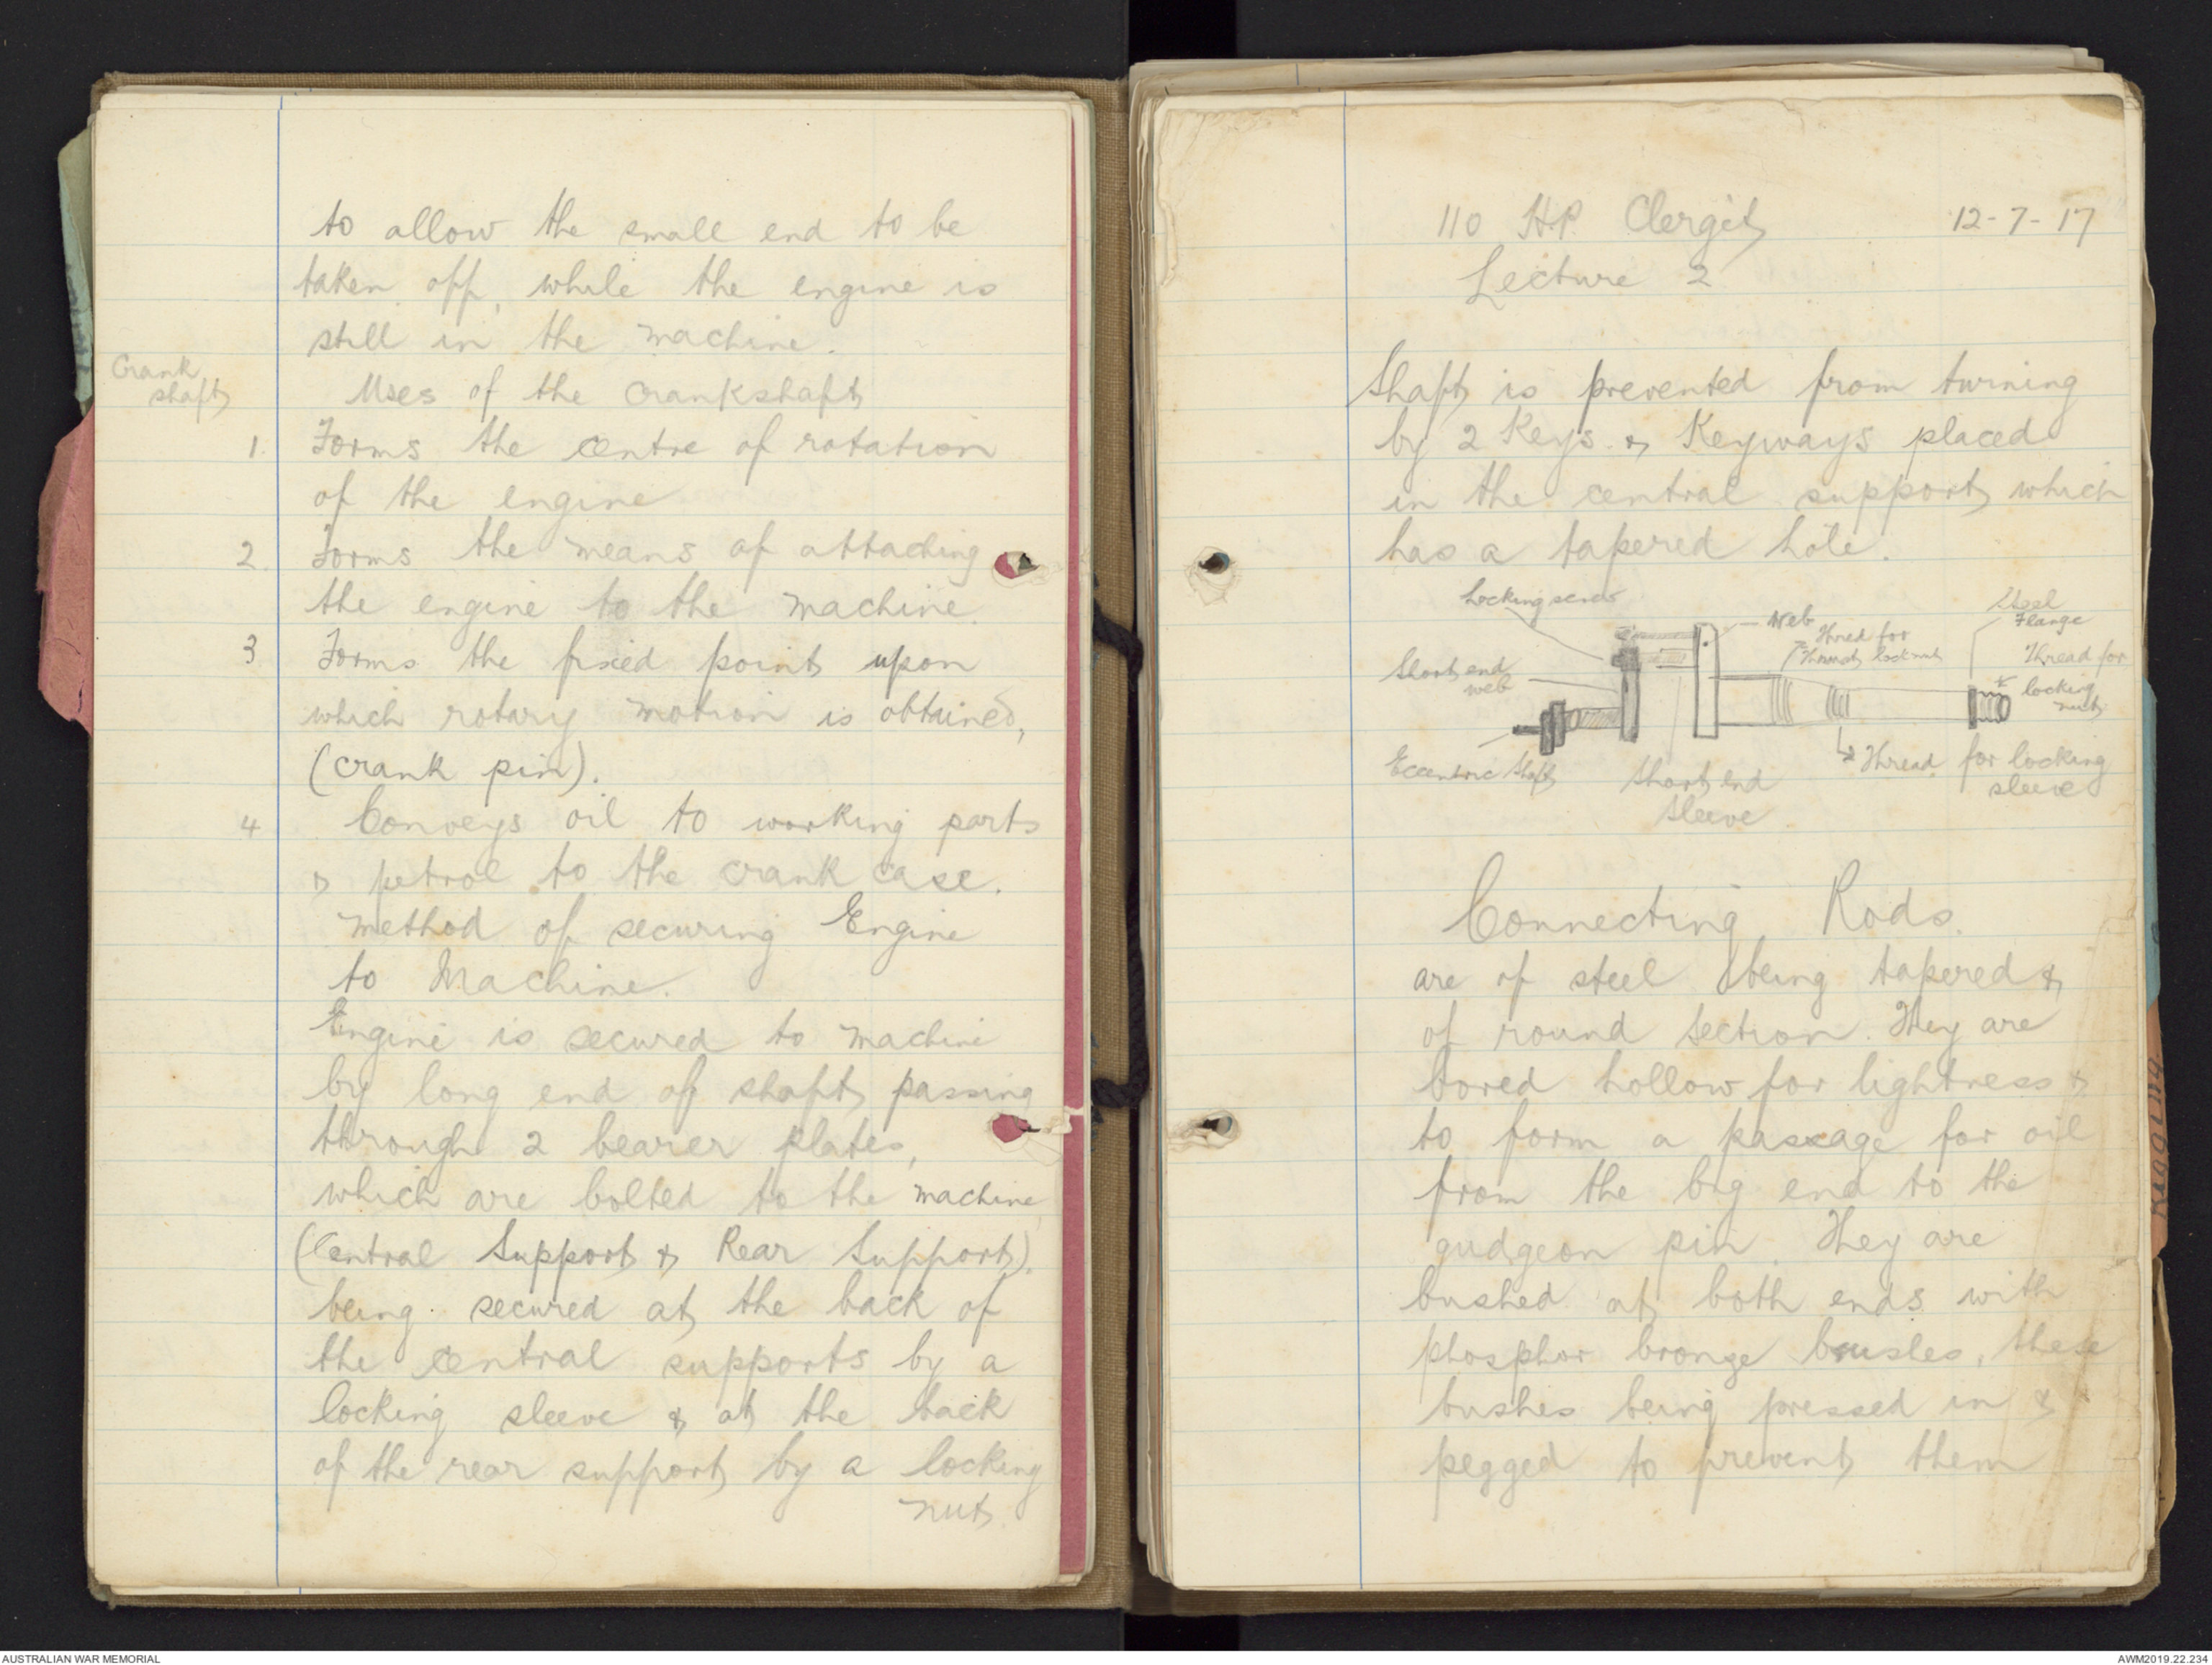 to allow the small end to be
taken off, while the engine is
still in the machine.
Crank
shaft
Uses of the Crankshaft
1. Forms the centre of rotation
of the engine
2. Forms the means of attaching
the engine to the machine.
3 Forms the fixed point upon
which rotary motion is obtained,
(crank pin).
4 Conveys oil to working parts
& petrol to the crank case.
Method of securing Engine
to Machine.
Engine is secured to machine
by long end of shaft passing
through 2 bearer plates,
which are bolted to the machine
(Central Support & Rear Support).
being secured at the back of
the central supports by a
locking sleeve & at the back
of the rear support by a locking
nut.
110 HP Clerget 12-7-17
Lecture 2
Shaft is prevented from turning
by 2 Keys & Keyways placed
in the central support which
has a tapered hole.
Locking screw
Web
Thred for
Thrust locknut
Steel
Flange
Thread for
locking
nut
Short end
web
Eccentric Shaft
Short end
Sleeve
Thread for locking
sleeve
Connecting Rods.
are of steel being tapered &
of round section. They are
bored hollow for lightness &
to form a passage for oil
from the big end to the
gudgeon pin. They are
bushed at both ends with
phosphor bronze bushes, these
bushes being pressed in &
pegged to prevent them
AUSTRALIAN WAR MEMORIAL
AWM2019.22.234